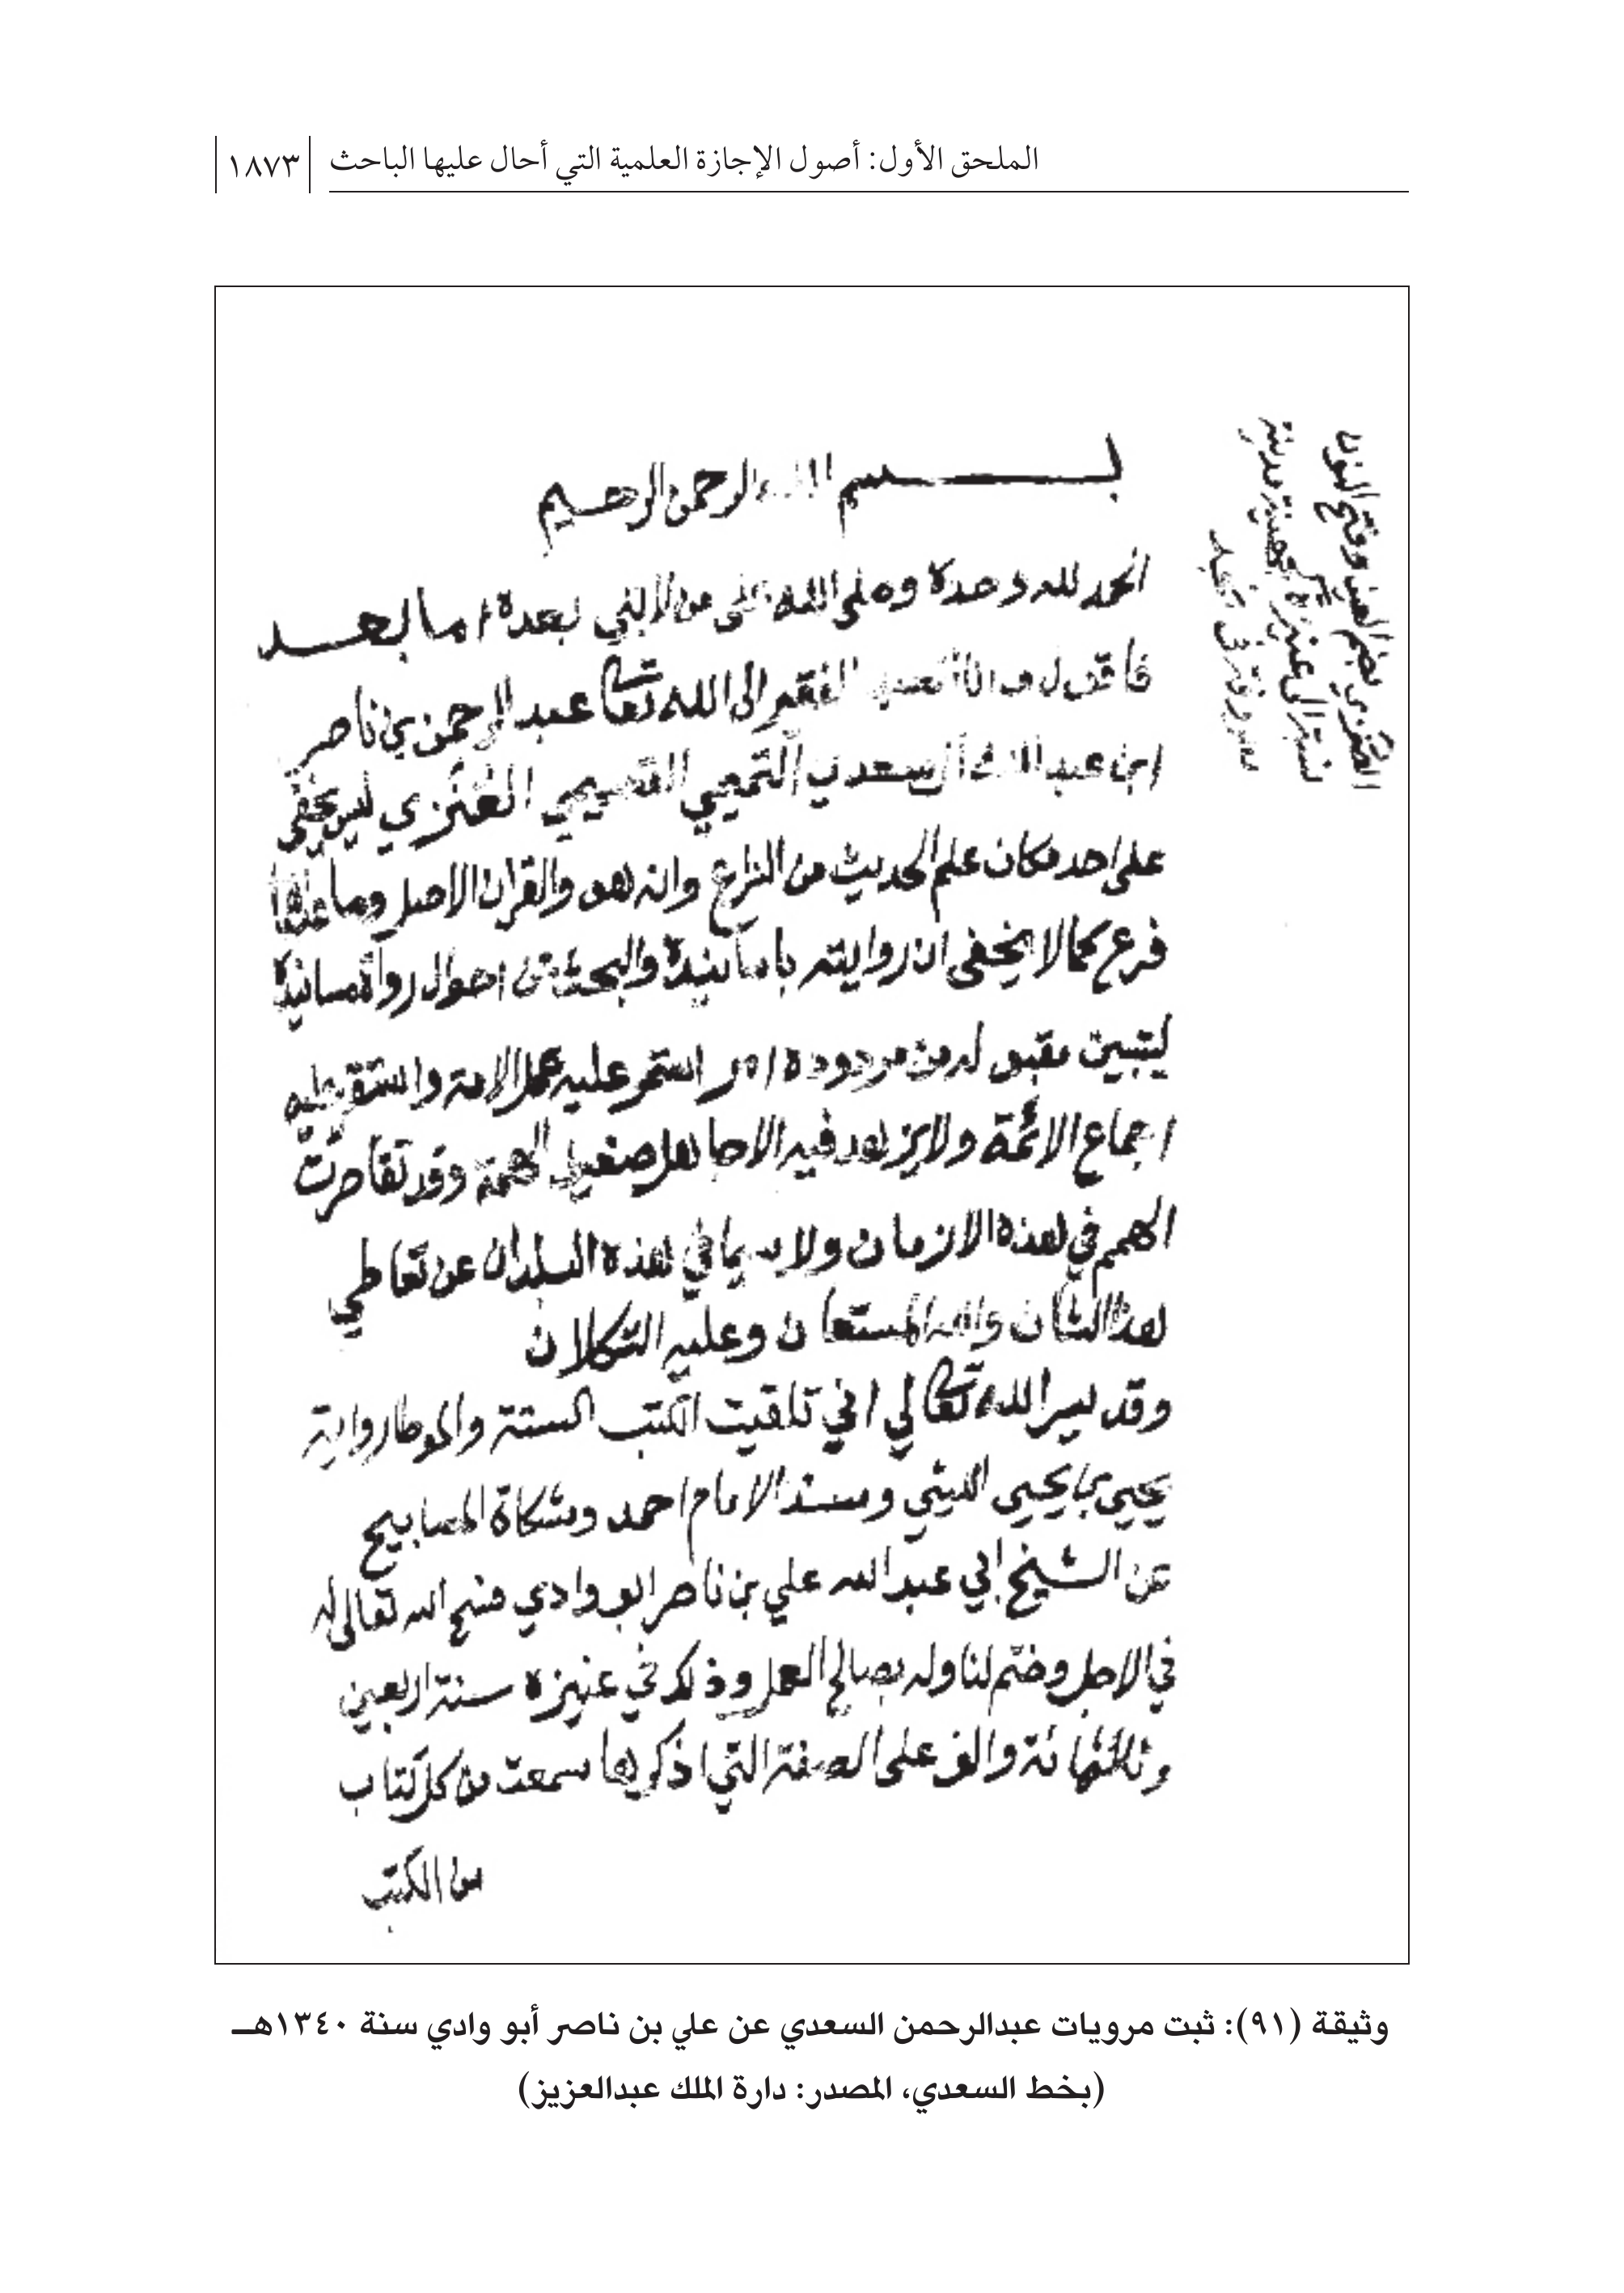 الملحق الأول: أصول الإجازة العلمية التي أحال عليها الباحث ١٨٧٣
بسم الله الرحمن الرحيم
الحمد لله وحده وصلى الله على من لا نبي بعده اما بعد
فاقول وانا العبد الفقير الى الله تعالى عبد الرحمن بن ناصر
ابن عبد الله آل سعدي التميمي القصيمي العُنَزي ليس يخفى
على احد مكان علم الحديث من الشرع وانه هو والقران الاصل وما عداهما
فرع كما لا يخفى ان روايته باسانيده والبحث عن احوال رواة مسانيده
ليتبين مقبوله من مردوده امر استمر عليه عمل الامة واستقر عليه
اجماع الائمة ولا يزهد فيه الا جاهل صغير الهمة وقد تقاصرت
الهمم في هذه الازمان ولا سيما في هذه البلدان عن تعاطي
هذا الشان والله المستعان وعليه التكلان
وقد يسر الله تعالى لي اني تلقيت الكتب الستة والموطا رواية
يحيى بن يحيى الليثي ومسند الامام احمد ومشكاة المصابيح
عن الشيخ ابي عبد الله علي بن ناصر ابو وادي فسح الله تعالى له
في الاجل وختم لنا وله بصالح العمل وذلك في عنيزه سنة اربعين
وثلثمائة والف على الصفة التي اذكرها سمعت من كل كتاب
من الكتب
العُنَزي بضم العين وفتح النون
نسبة الى عنيزة مدينة
وثيقة (٩١): ثبت مرويات عبدالرحمن السعدي عن علي بن ناصر أبو وادي سنة ١٣٤٠هـ
(بخط السعدي، المصدر: دارة الملك عبدالعزيز)